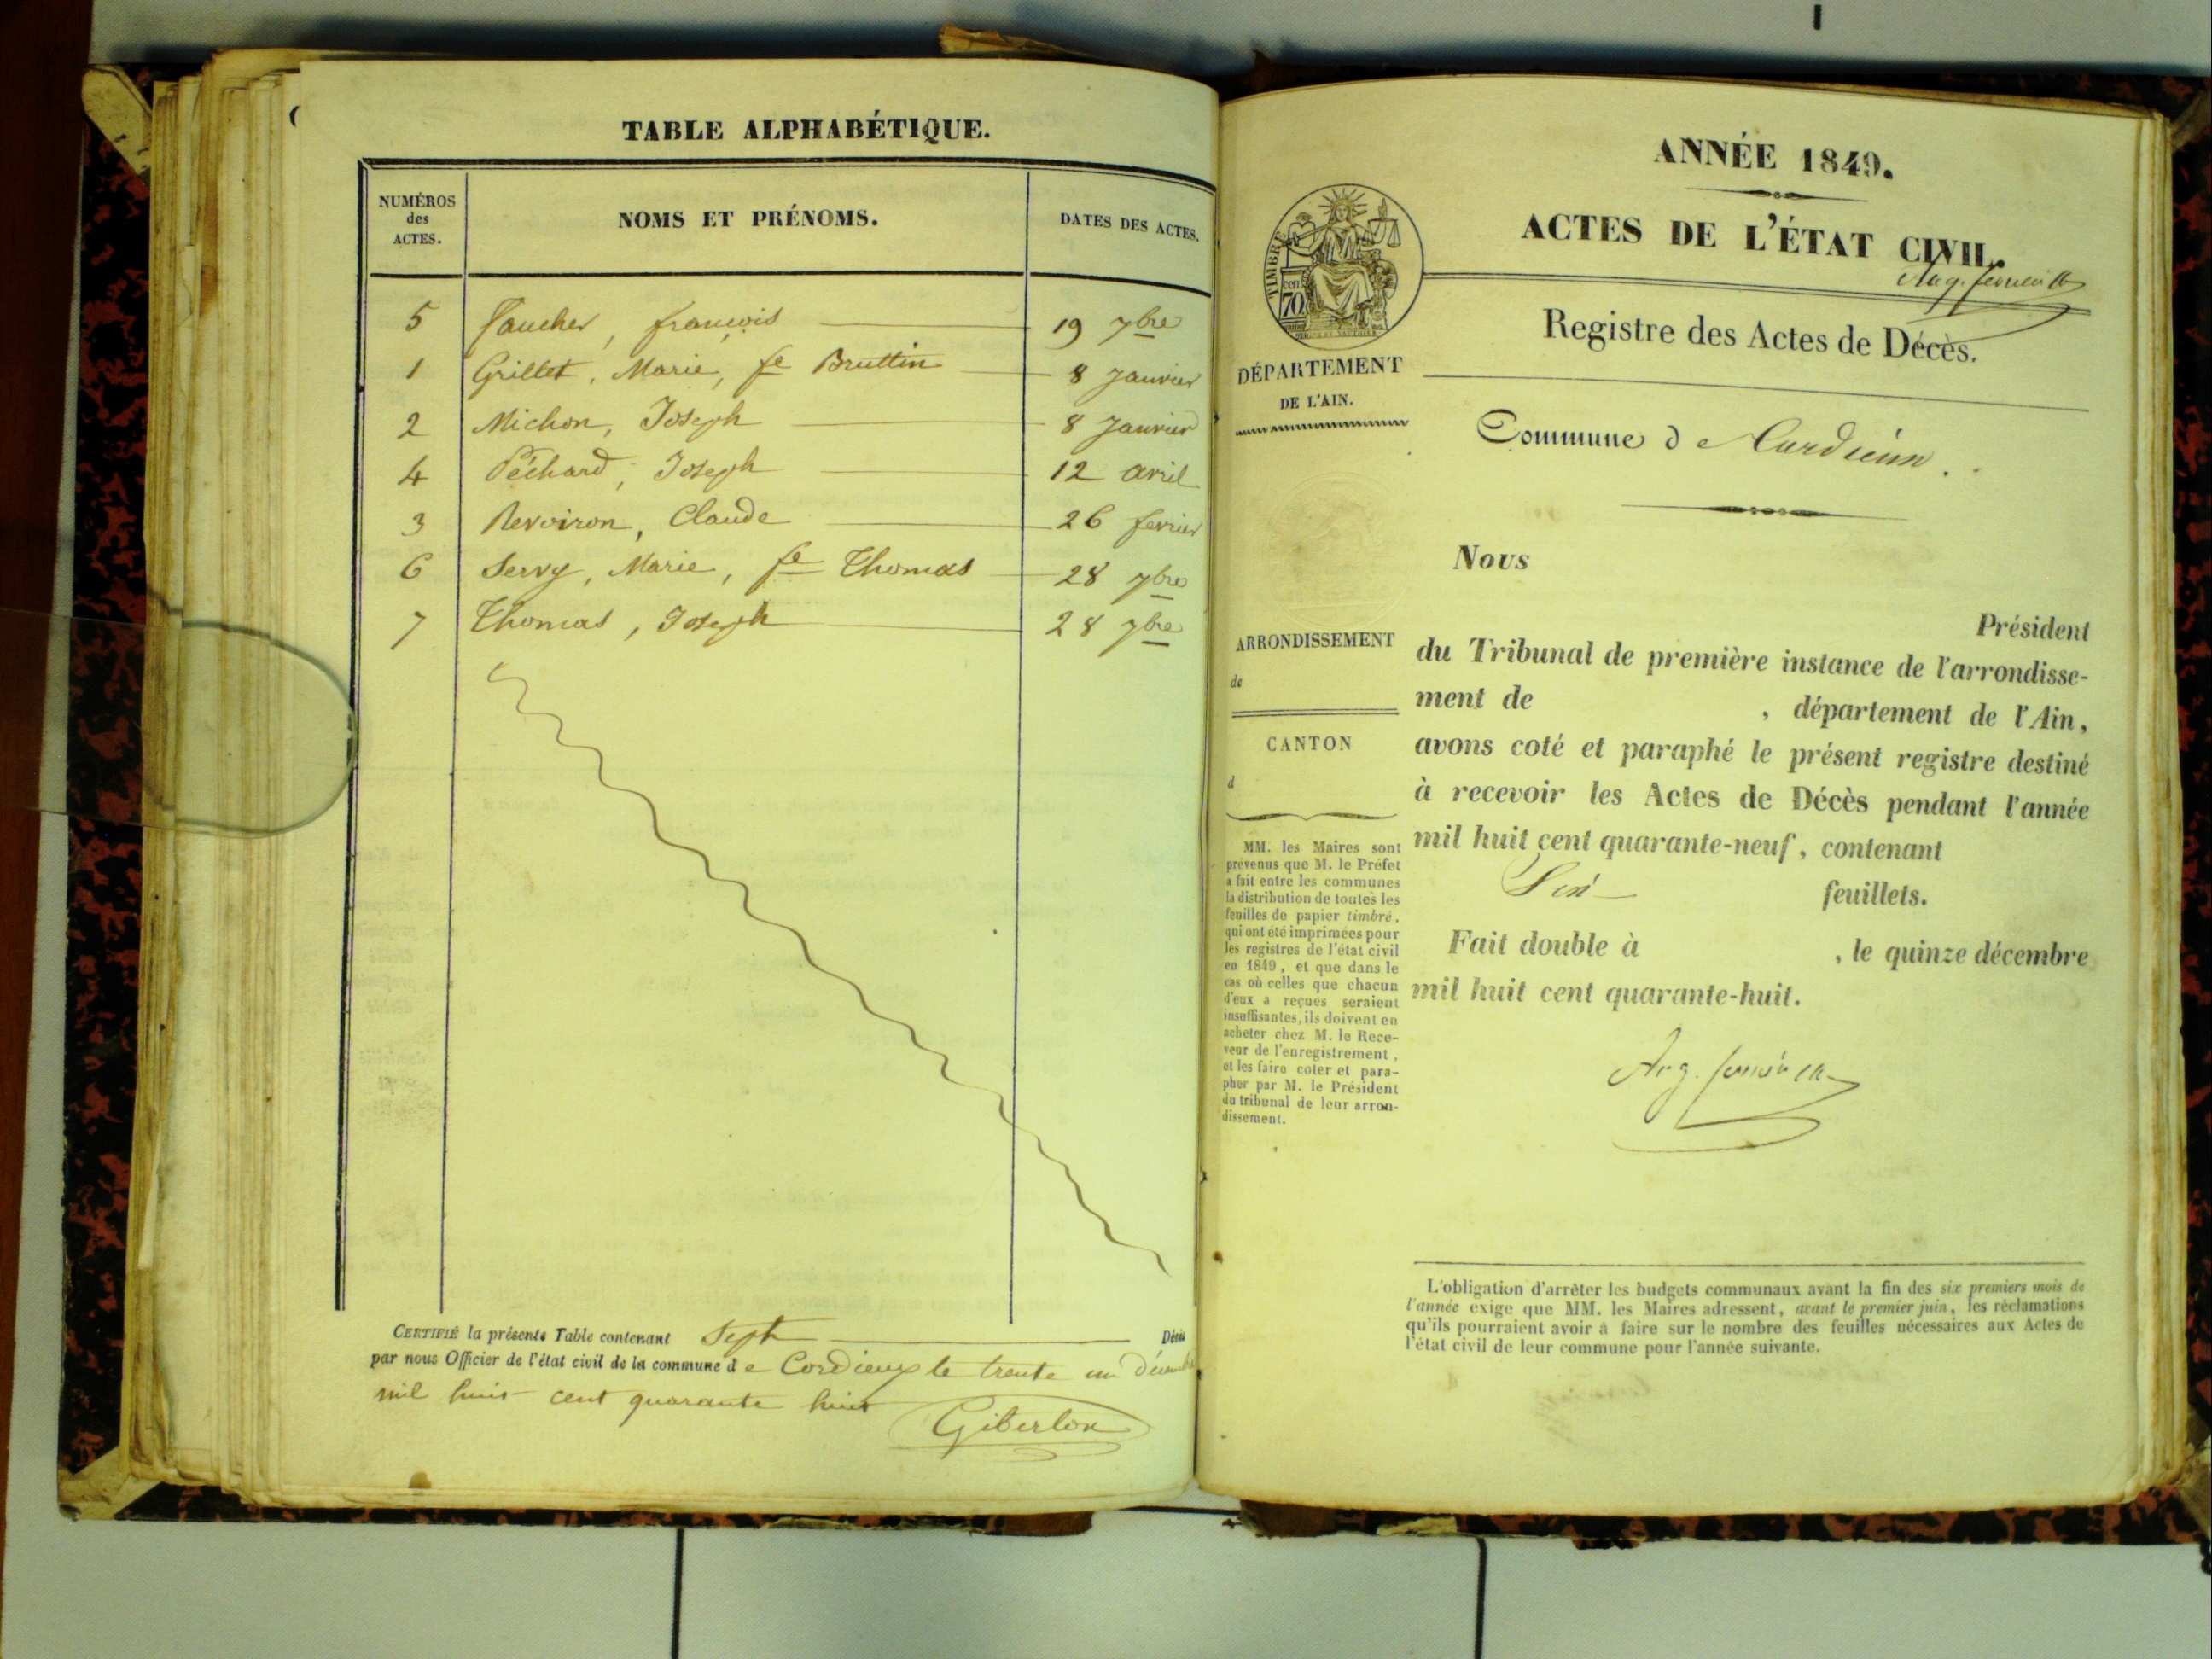 TABLE ALPHABÉTIQUE.
NUMÉROS des ACTES. NOMS ET PRÉNOMS. DATES DES ACTES.
5 Faucher, françois 19 7bre
1 Grillet, Marie, fe Bruttin 8 Janvier
2 Michon, Joseph 8 Janvier
4 Péchard, Joseph 12 avril
3 Revoiron, Claude 26 fevrier
6 Servy, Marie, fe Thomas 28 7bre
7 Thomas, Joseph 28 7bre
CERTIFIÉ la présente Table contenant Sept Décès
par nous Officier de l'état civil de la commune de Cordieux le trente un Décembre
mil huit cent quarante huit
Giberlon
ANNÉE 1849.
ACTES DE L'ÉTAT CIVIL.
Registre des Actes de Décès.
TIMBRE
cen
70
DÉPARTEMENT
DE L'AIN.
Commune de Cordieux.
Nous
Président
du Tribunal de première instance de l'arrondisse-
ment de , département de l'Ain,
avons coté et paraphé le présent registre destiné
à recevoir les Actes de Décès pendant l'année
mil huit cent quarante-neuf, contenant
feuillets.
Fait double à , le quinze décembre
mil huit cent quarante-huit.
ARRONDISSEMENT
de
CANTON
d
MM. les Maires sont
prévenus que M. le Préfet
a fait entre les communes
la distribution de toutes les
feuilles de papier timbré,
qui ont été imprimées pour
les registres de l'état civil
en 1849, et que dans le
cas où celles que chacun
d'eux a reçues seraient
insuffisantes, ils doivent en
acheter chez M. le Rece-
veur de l'enregistrement,
et les faire coter et para-
pher par M. le Président
du tribunal de leur arron-
dissement.
L'obligation d'arrêter les budgets communaux avant la fin des six premiers mois de
l'année exige que MM. les Maires adressent, avant le premier juin, les réclamations
qu'ils pourraient avoir à faire sur le nombre des feuilles nécessaires aux Actes de
l'état civil de leur commune pour l'année suivante.